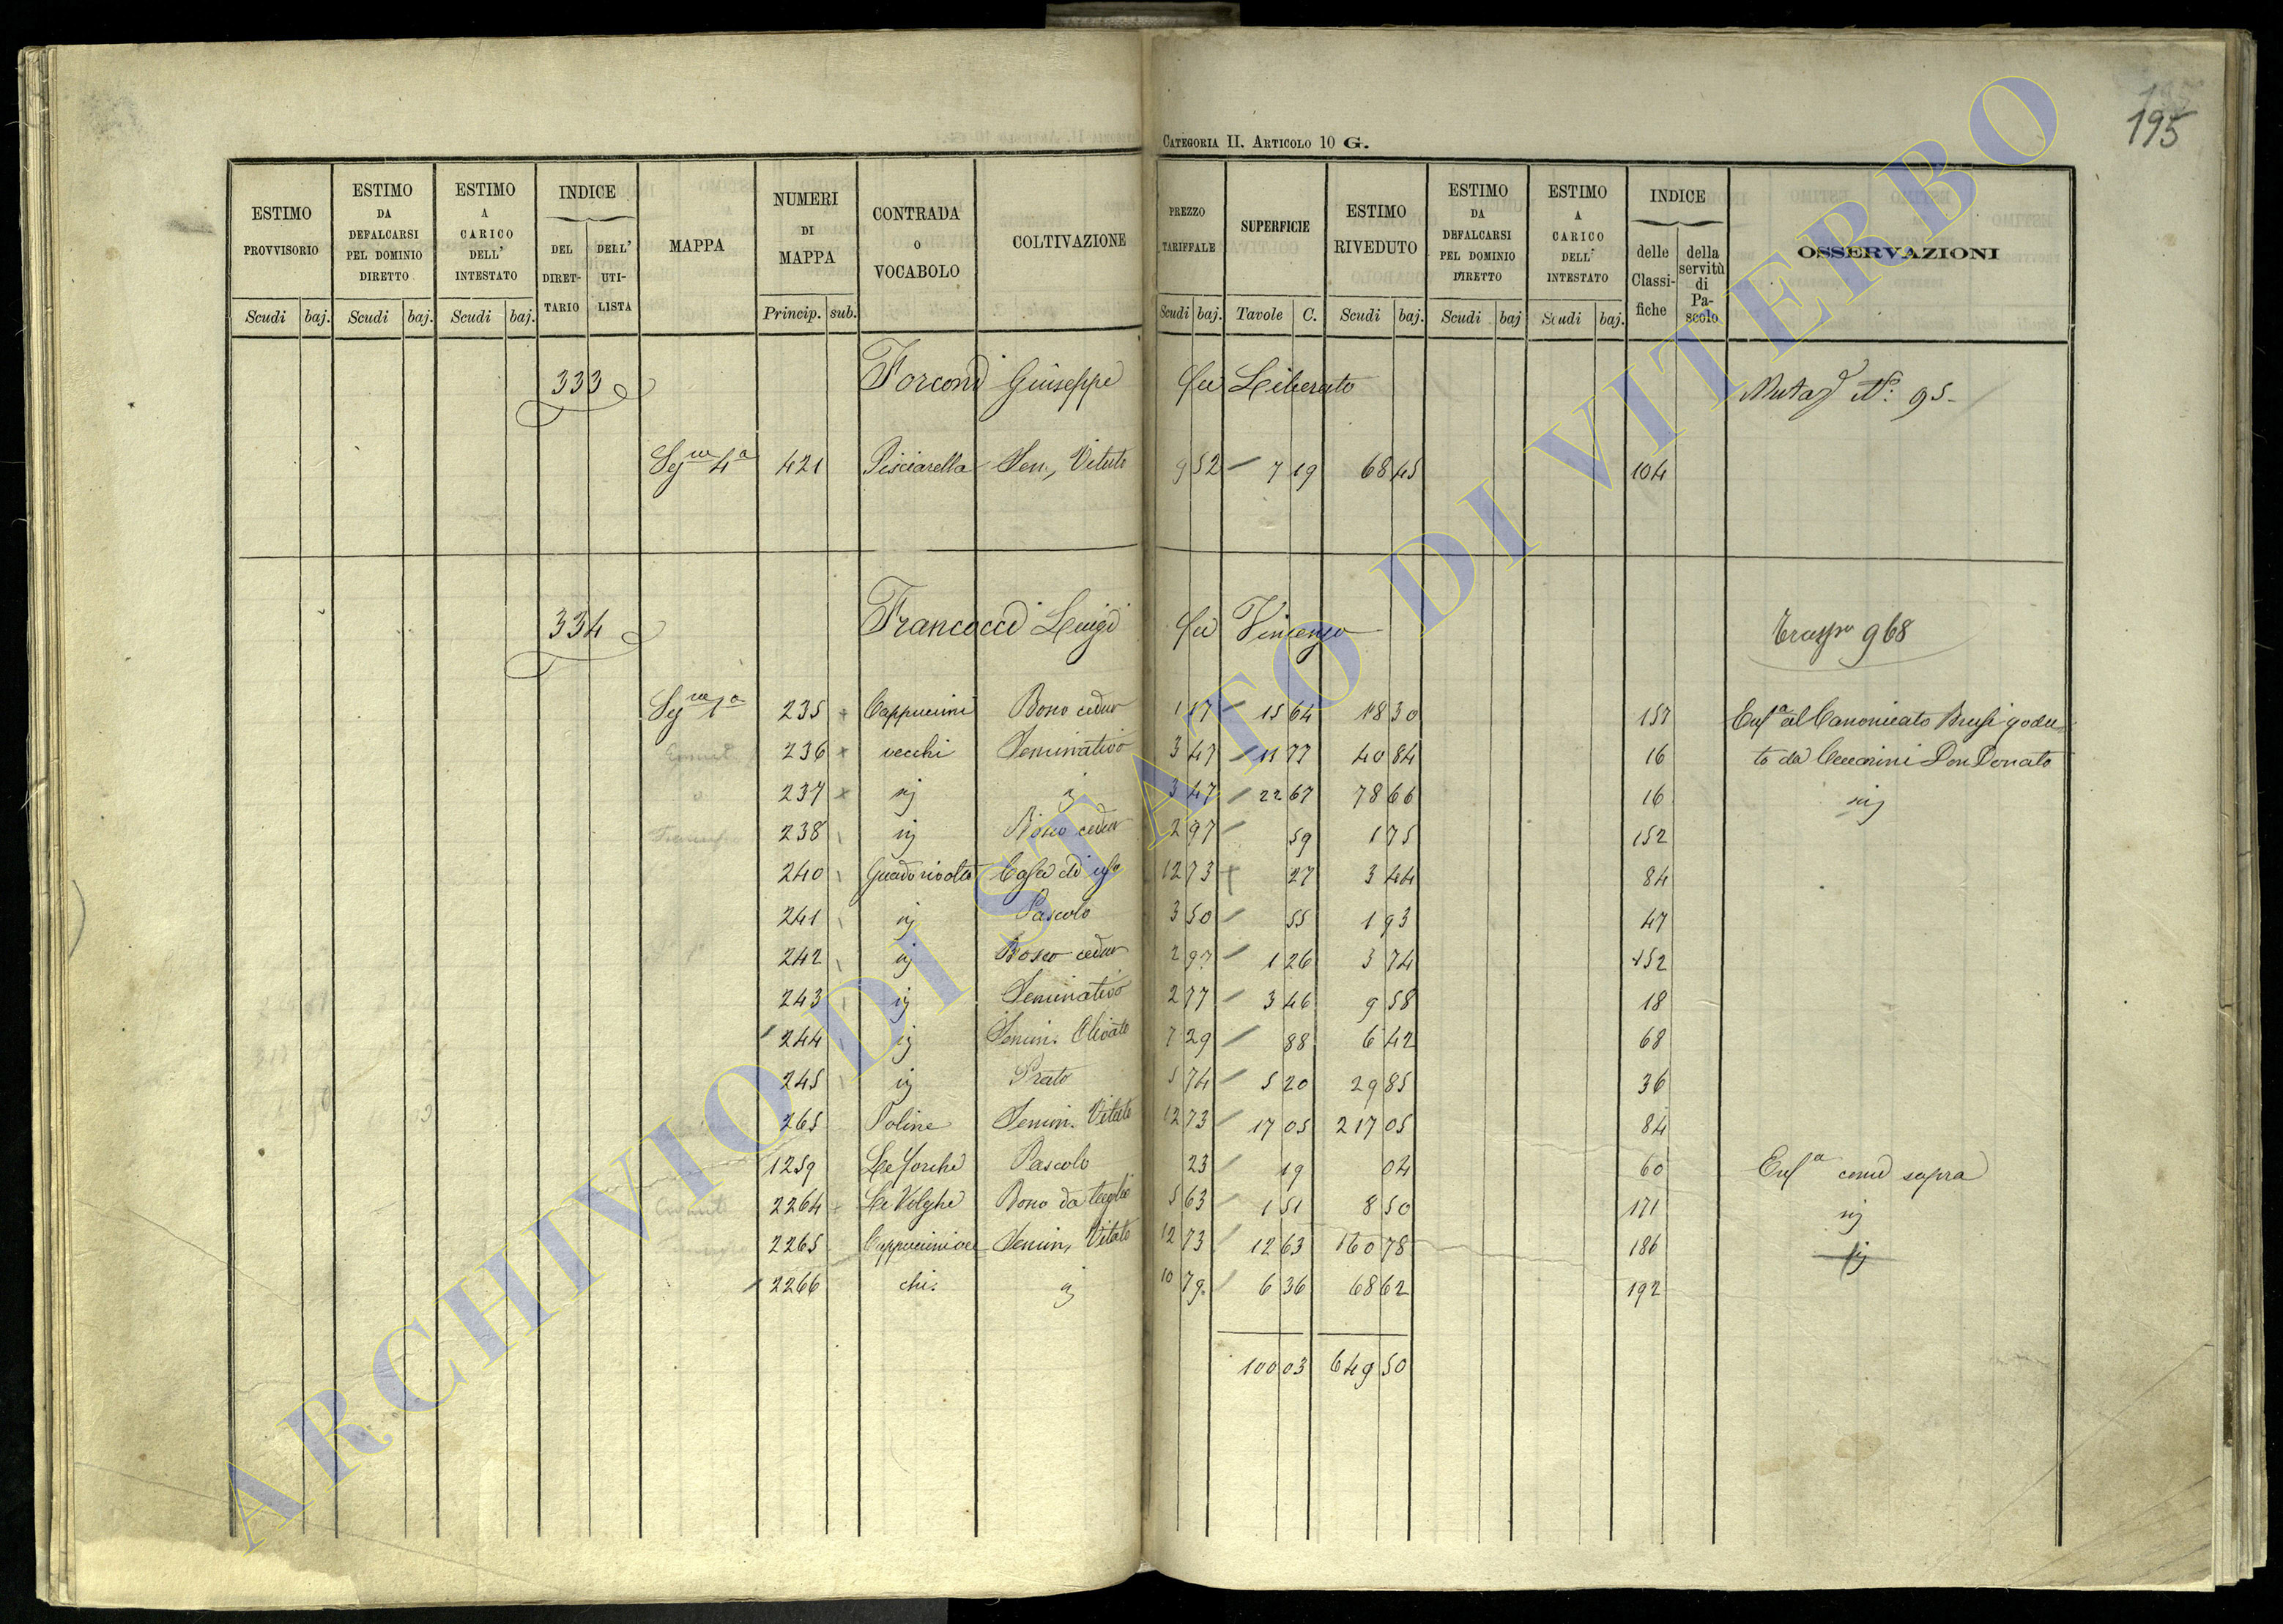 195
CATEGORIA II. ARTICOLO 10 G.
ESTIMO PROVVISORIO | ESTIMO DA DEFALCARSI PEL DOMINIO DIRETTO | ESTIMO A CARICO DELL' INTESTATO | INDICE DEL DIRETTARIO | DELL' UTILISTA | MAPPA | NUMERI DI MAPPA | CONTRADA O VOCABOLO | COLTIVAZIONE | PREZZO TARIFFALE | SUPERFICIE | ESTIMO RIVEDUTO | ESTIMO DA DEFALCARSI PEL DOMINIO DIRETTO | ESTIMO A CARICO DELL' INTESTATO | INDICE delle Classifiche | della servitù di Pascolo | OSSERVAZIONI
Scudi | baj. | Scudi | baj. | Scudi | baj. | Princip. | sub. | Scudi | baj. | Tavole | C. | Scudi | baj. | Scudi | baj | Scudi | baj.
333 Forconi Giuseppe fu Liberato Nº. 95
4ª 421 Pisciarella Sem, Vitato 9 52 7 19 68 45 104
334 Francocci Luigi fu Vincenzo 968
1ª 235 Cappuccini Bosco ceduo 1 17 15 64 18 30 157 al Canonicato godu
236 vecchi Seminativo 3 47 11 77 40 84 16 to da Ceccarini Don Donato
237 ij ij 3 47 22 67 78 66 16 ij
238 ij Bosco ceduo 2 97 59 1 75 152
240 Guadorivolta Casa di uso 12 73 27 3 44 84
241 ij Pascolo 3 50 55 1 93 47
242 ij Bosco ceduo 2 97 1 26 3 74 152
243 ij Seminativo 2 77 3 46 9 58 18
244 ij Semin. Olivato 7 29 88 6 42 68
245 ij Prato 5 74 5 20 29 85 36
265 Poline Semin. Vitato 12 73 17 05 217 05 84
1259 Le forche Pascolo 23 19 04 60 Enfª come sopra
2264 Le Volghe Bosco da taglio 5 63 1 51 8 50 171 ij
2265 Cappuccini vec Semin, Vitato 12 73 12 63 160 78 186 ij
2266 chi. ij 10 79 6 36 68 62 192
100 03 649 50
ARCHIVIO DI STATO DI VITERBO